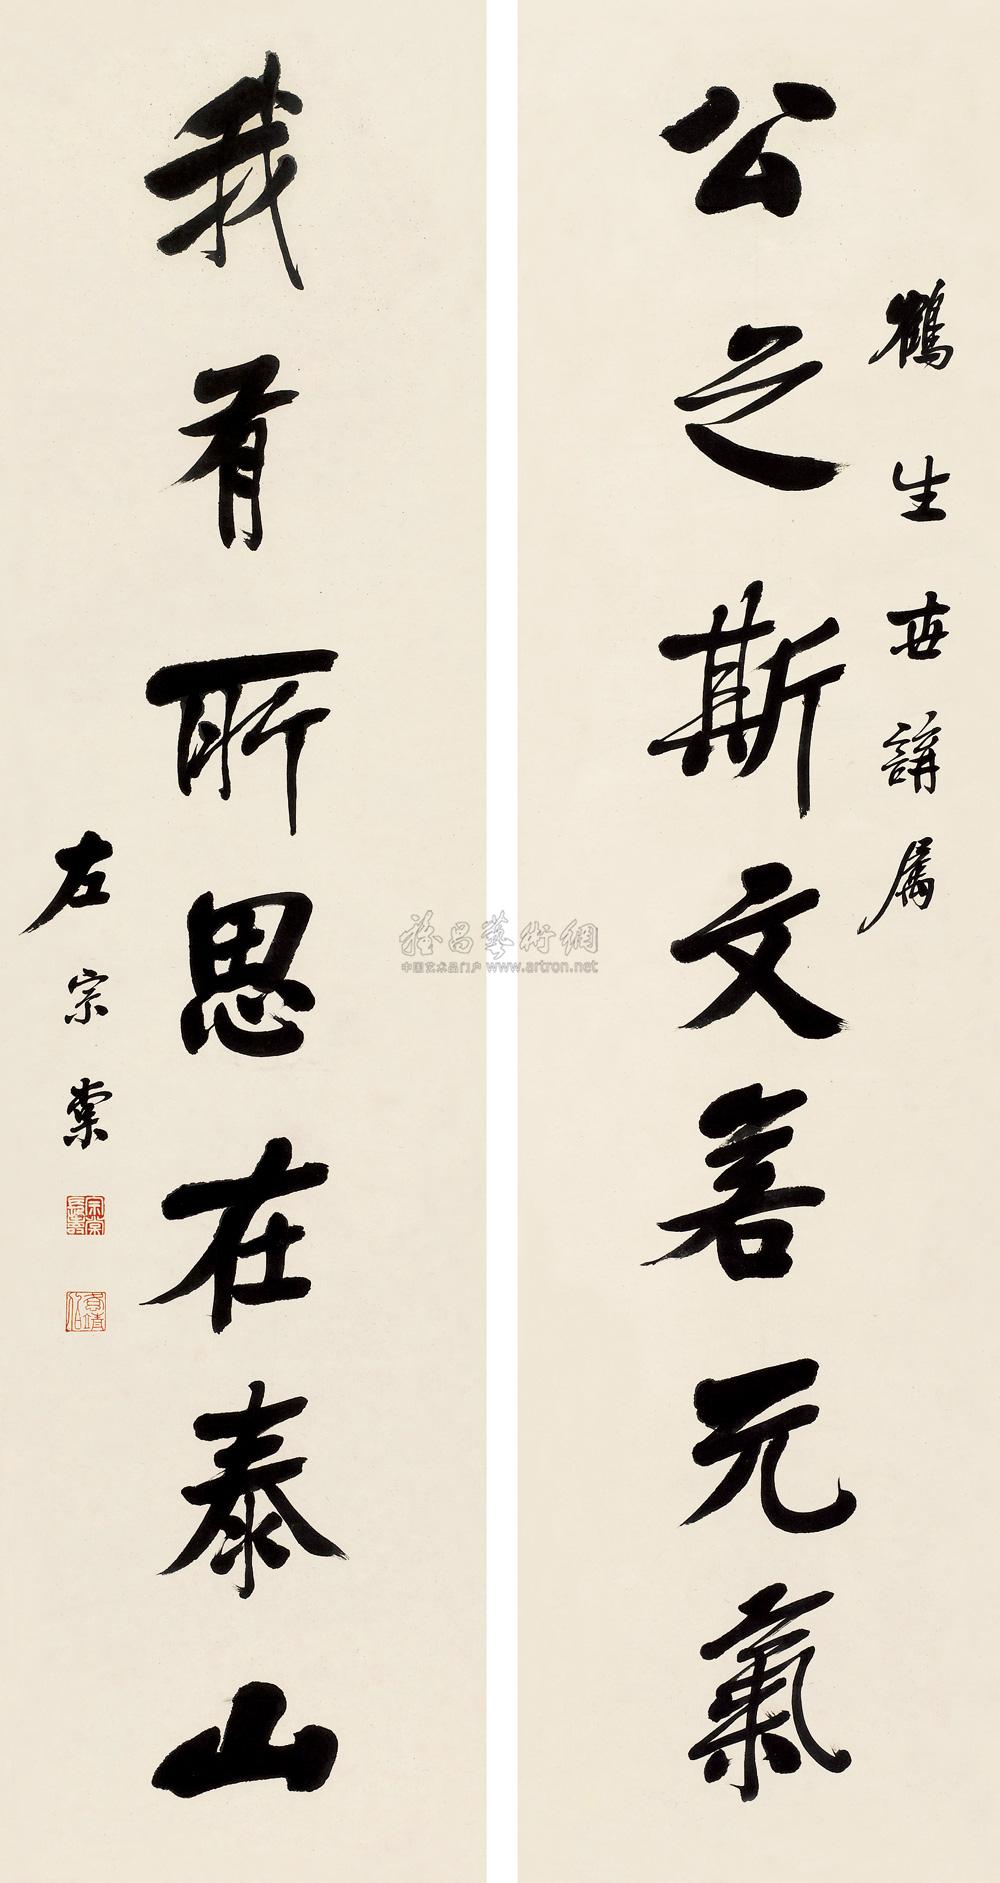 鶴生世講屬
公之斯文若元氣
我有所思在泰山
左宗棠
雅昌藝術網
中国艺术品门户 www.artron.net